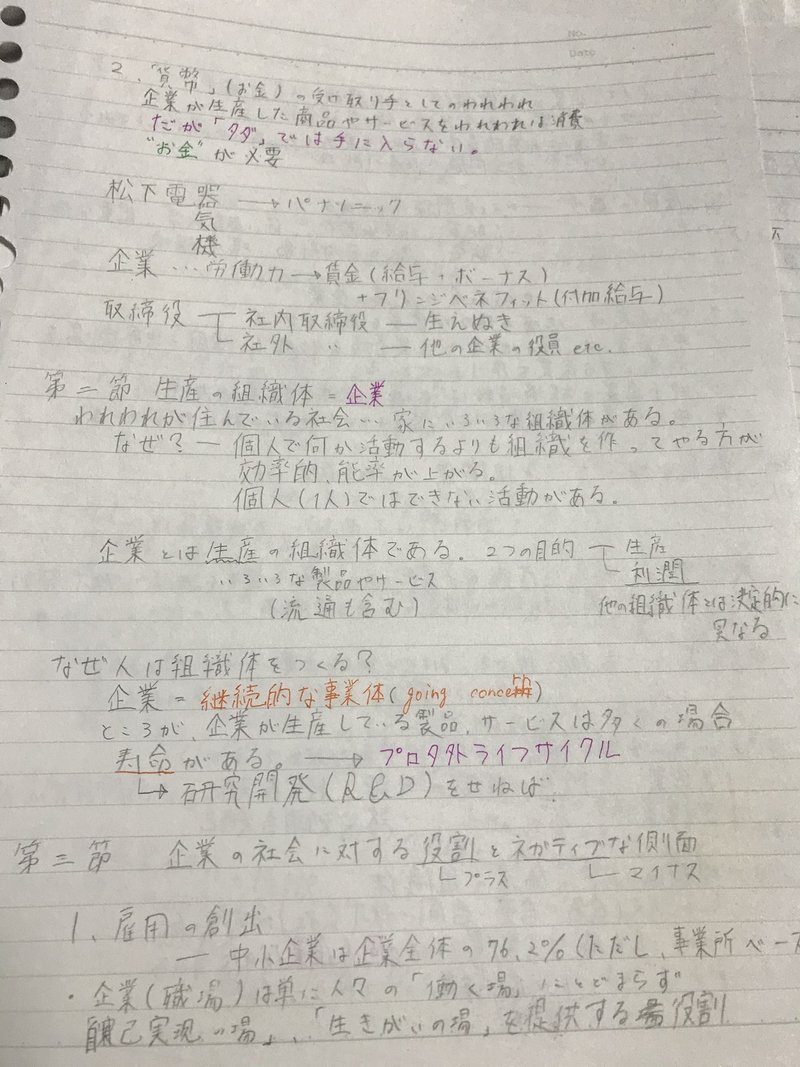 No.
Date
2.「貨幣」(お金)の受け取り手としてのわれわれ
企業が生産した商品やサービスをわれわれは消費
だが「タダ」では手に入らない。
"お金"が必要
松下電器 → パナソニック
気
機
企業…労働力→賃金(給与+ボーナス)
+フリンジベネフィット(付加給与)
取締役 社内取締役 ― 生えぬき
社外 〃 ― 他の企業の役員etc.
第二節 生産の組織体=企業
われわれが住んでいる社会… 家にいろいろな組織体がある。
なぜ?― 個人で何か活動するよりも組織を作ってやる方が
効率的、能率が上がる。
個人(1人)ではできない活動がある。
企業とは生産の組織体である。2つの目的 生産
いろいろな製品やサービス 利潤
(流通も含む) 他の組織体とは決定的に
異なる
なぜ人は組織体をつくる?
企業=継続的な事業体(going concern)
ところが、企業が生産している製品、サービスは多くの場合
寿命がある。→ プロダクトライフサイクル
→研究開発(R&D)をせねば
第三節 企業の社会に対する役割とネガティブな側面
プラス マイナス
1、雇用の創出
― 中小企業は企業全体の76.2%(ただし、事業所ベース
・企業(職場)は単に人々の「働く場」にとどまらず
自己実現の場」、「生きがいの場」を提供する役割